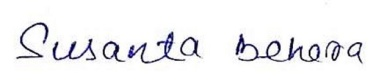 Susanta Behera